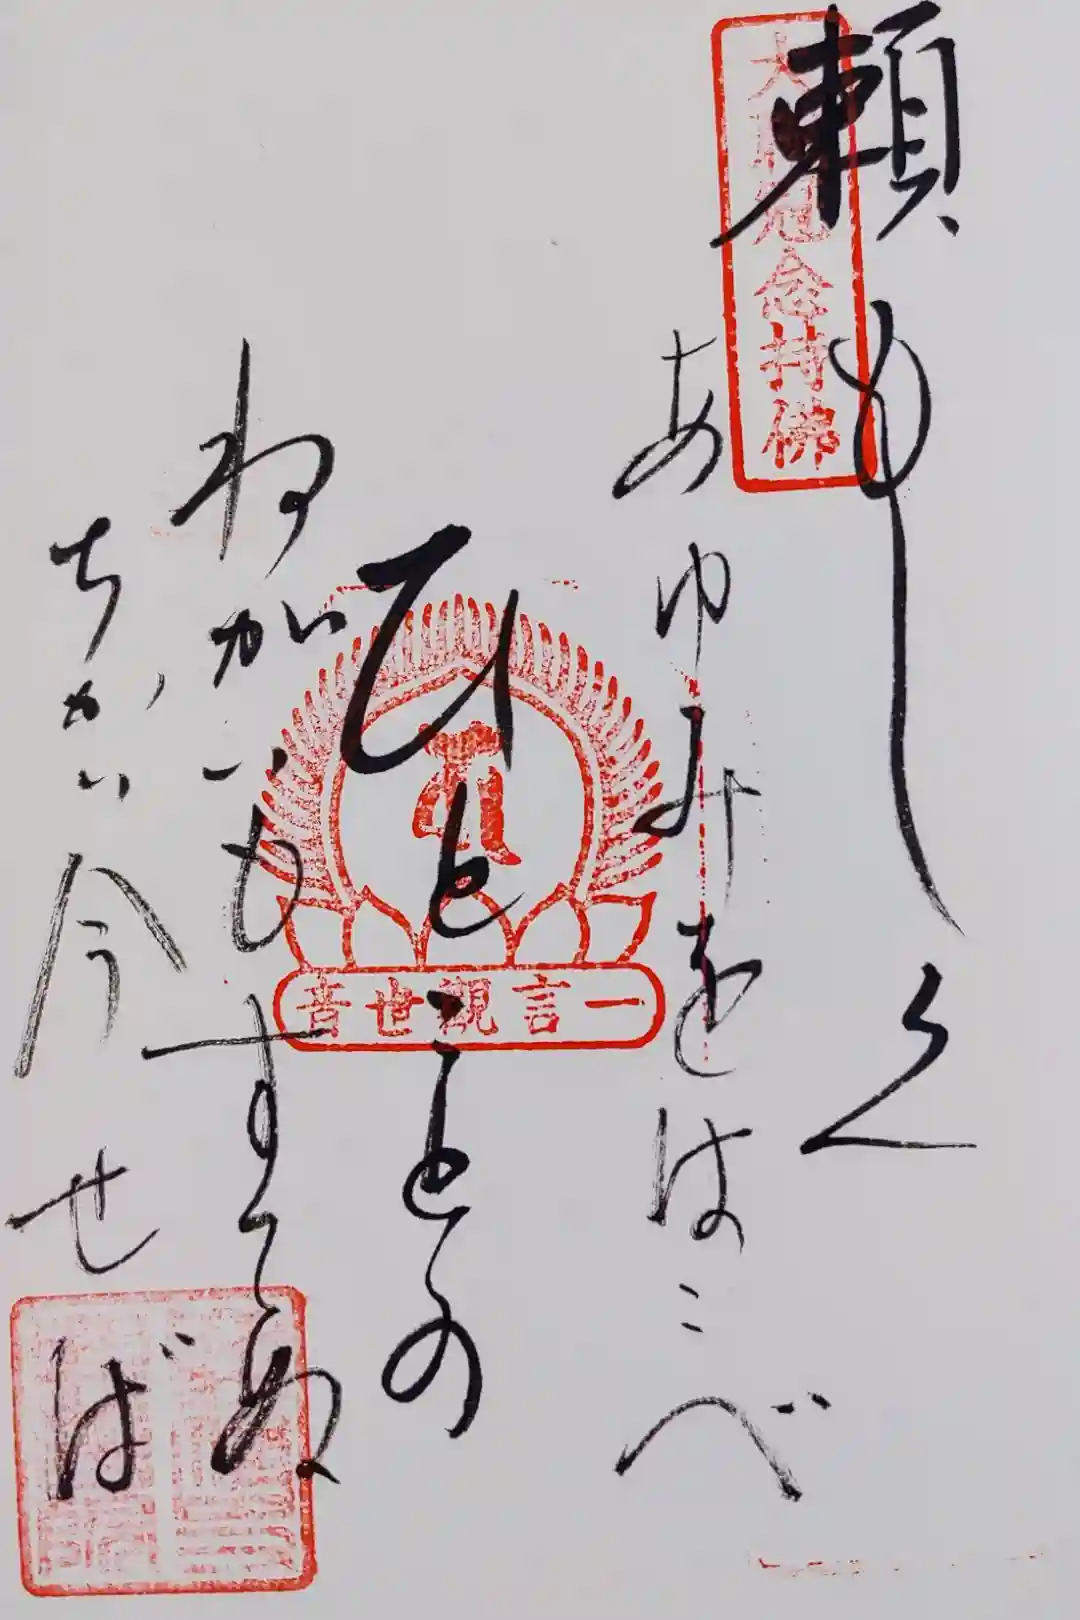 大織冠念持佛
頼もしく
あゆみをはこべ
ひとことの
ねがいもすてぬ
ちかい今せば
一言觀世音